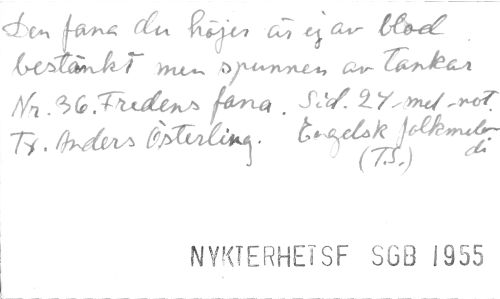 Den fana du höjer är ej av blod
bestänkt men spunnen av tankar
Nr. 36. Fredens fana. Sid. 24 mel-not.
Tr. Anders Österling. Engelsk folkmelo-
(T.S.) di
NYKTERHETSF SGB 1955